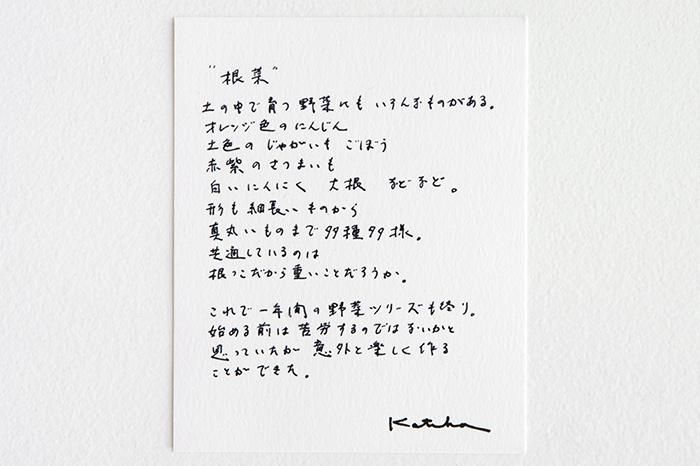 "根菜"
土の中で育つ野菜にも いろんなものがある。
オレンジ色のにんじん
土色の じゃがいも ごぼう
赤紫のさつまいも
白いにんにく 大根 などなど。
形も細長いものから
真丸いものまで多種多様。
共通しているのは
根っこだから重いことだろうか。
これで一年間の野菜シリーズも終り。
始める前は苦労するのではないかと
思っていたが 意外と楽しく作る
ことができた。
Katcha